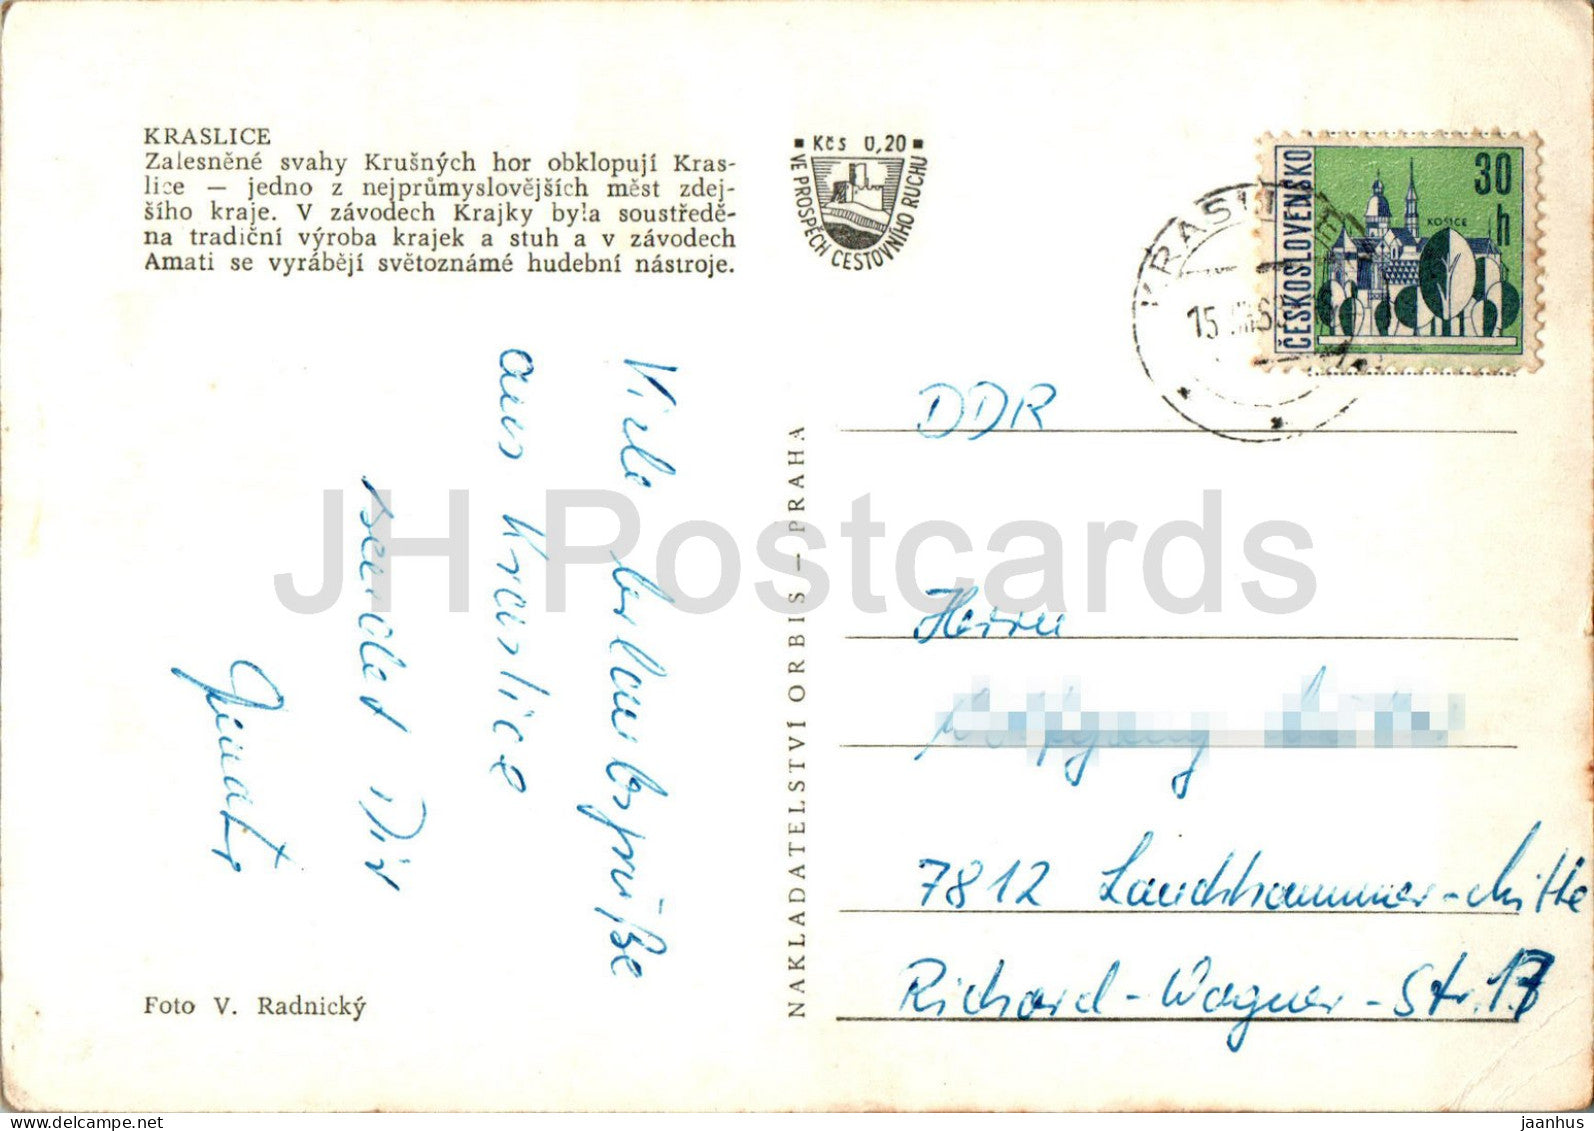 KRASLICE
Zalesněné svahy Krušných hor obklopují Kras-
lice — jedno z nejprůmyslovějších měst zdej-
šího kraje. V závodech Krajky byla soustředě-
na tradiční výroba krajek a stuh a v závodech
Amati se vyrábějí světoznámé hudební nástroje.
Kčs 0,20
VE PROSPĚCH CESTOVNÍHO RUCHU
KRASLICE
15
ČESKOSLOVENSKO
30
h
KOŠICE
Viele Urlaubsgrüße
aus Kraslice
sendet Dir
NAKLADATELSTVÍ ORBIS — PRAHA
DDR
Herrn
7812 Lauchhammer-Mitte
Richard-Wagner-Str.
Foto V. Radnický
JH Postcards
jaanhus